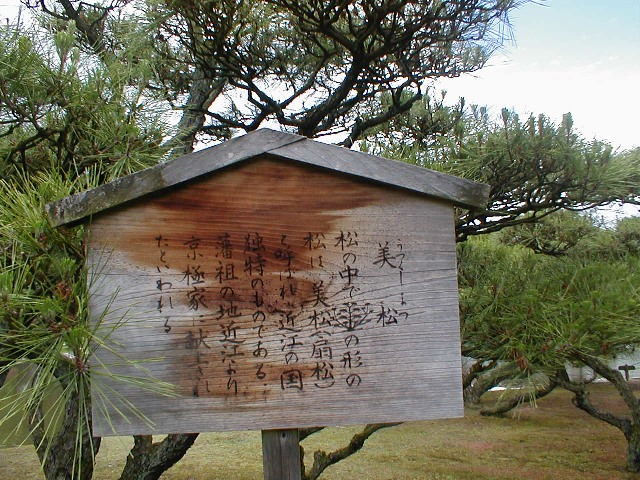 うつくしまつ
美松
松の中で傘の形の
松は、美松(扇松)
と呼ばれ近江の国
独特のものである
藩祖の地近江より
京極家に献上され
たといわれる